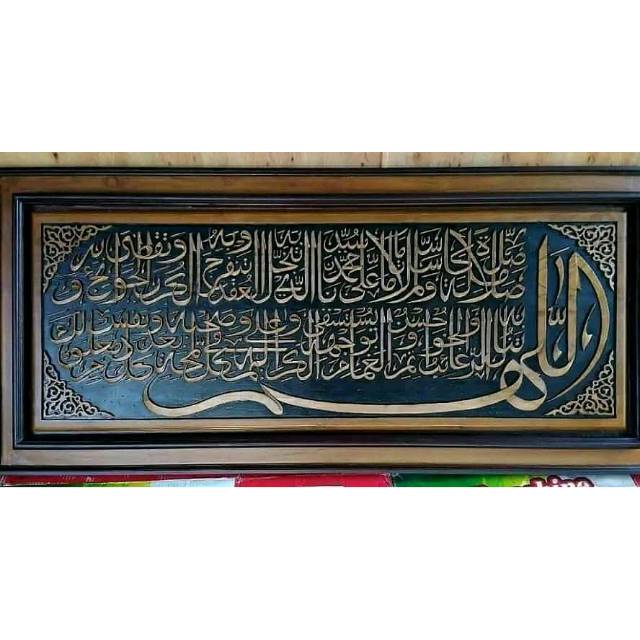 اللهم صل صلاة كاملة وسلم سلاما تاما على سيدنا محمد الذي تنحل به العقد وتنفرج به الكرب وتقضى به الحوائج و
تنال به الرغائب وحسن الخواتم ويستسقى الغمام بوجهه الكريم وعلى آله وصحبه في كل لمحة ونفس بعدد كل معلوم لك